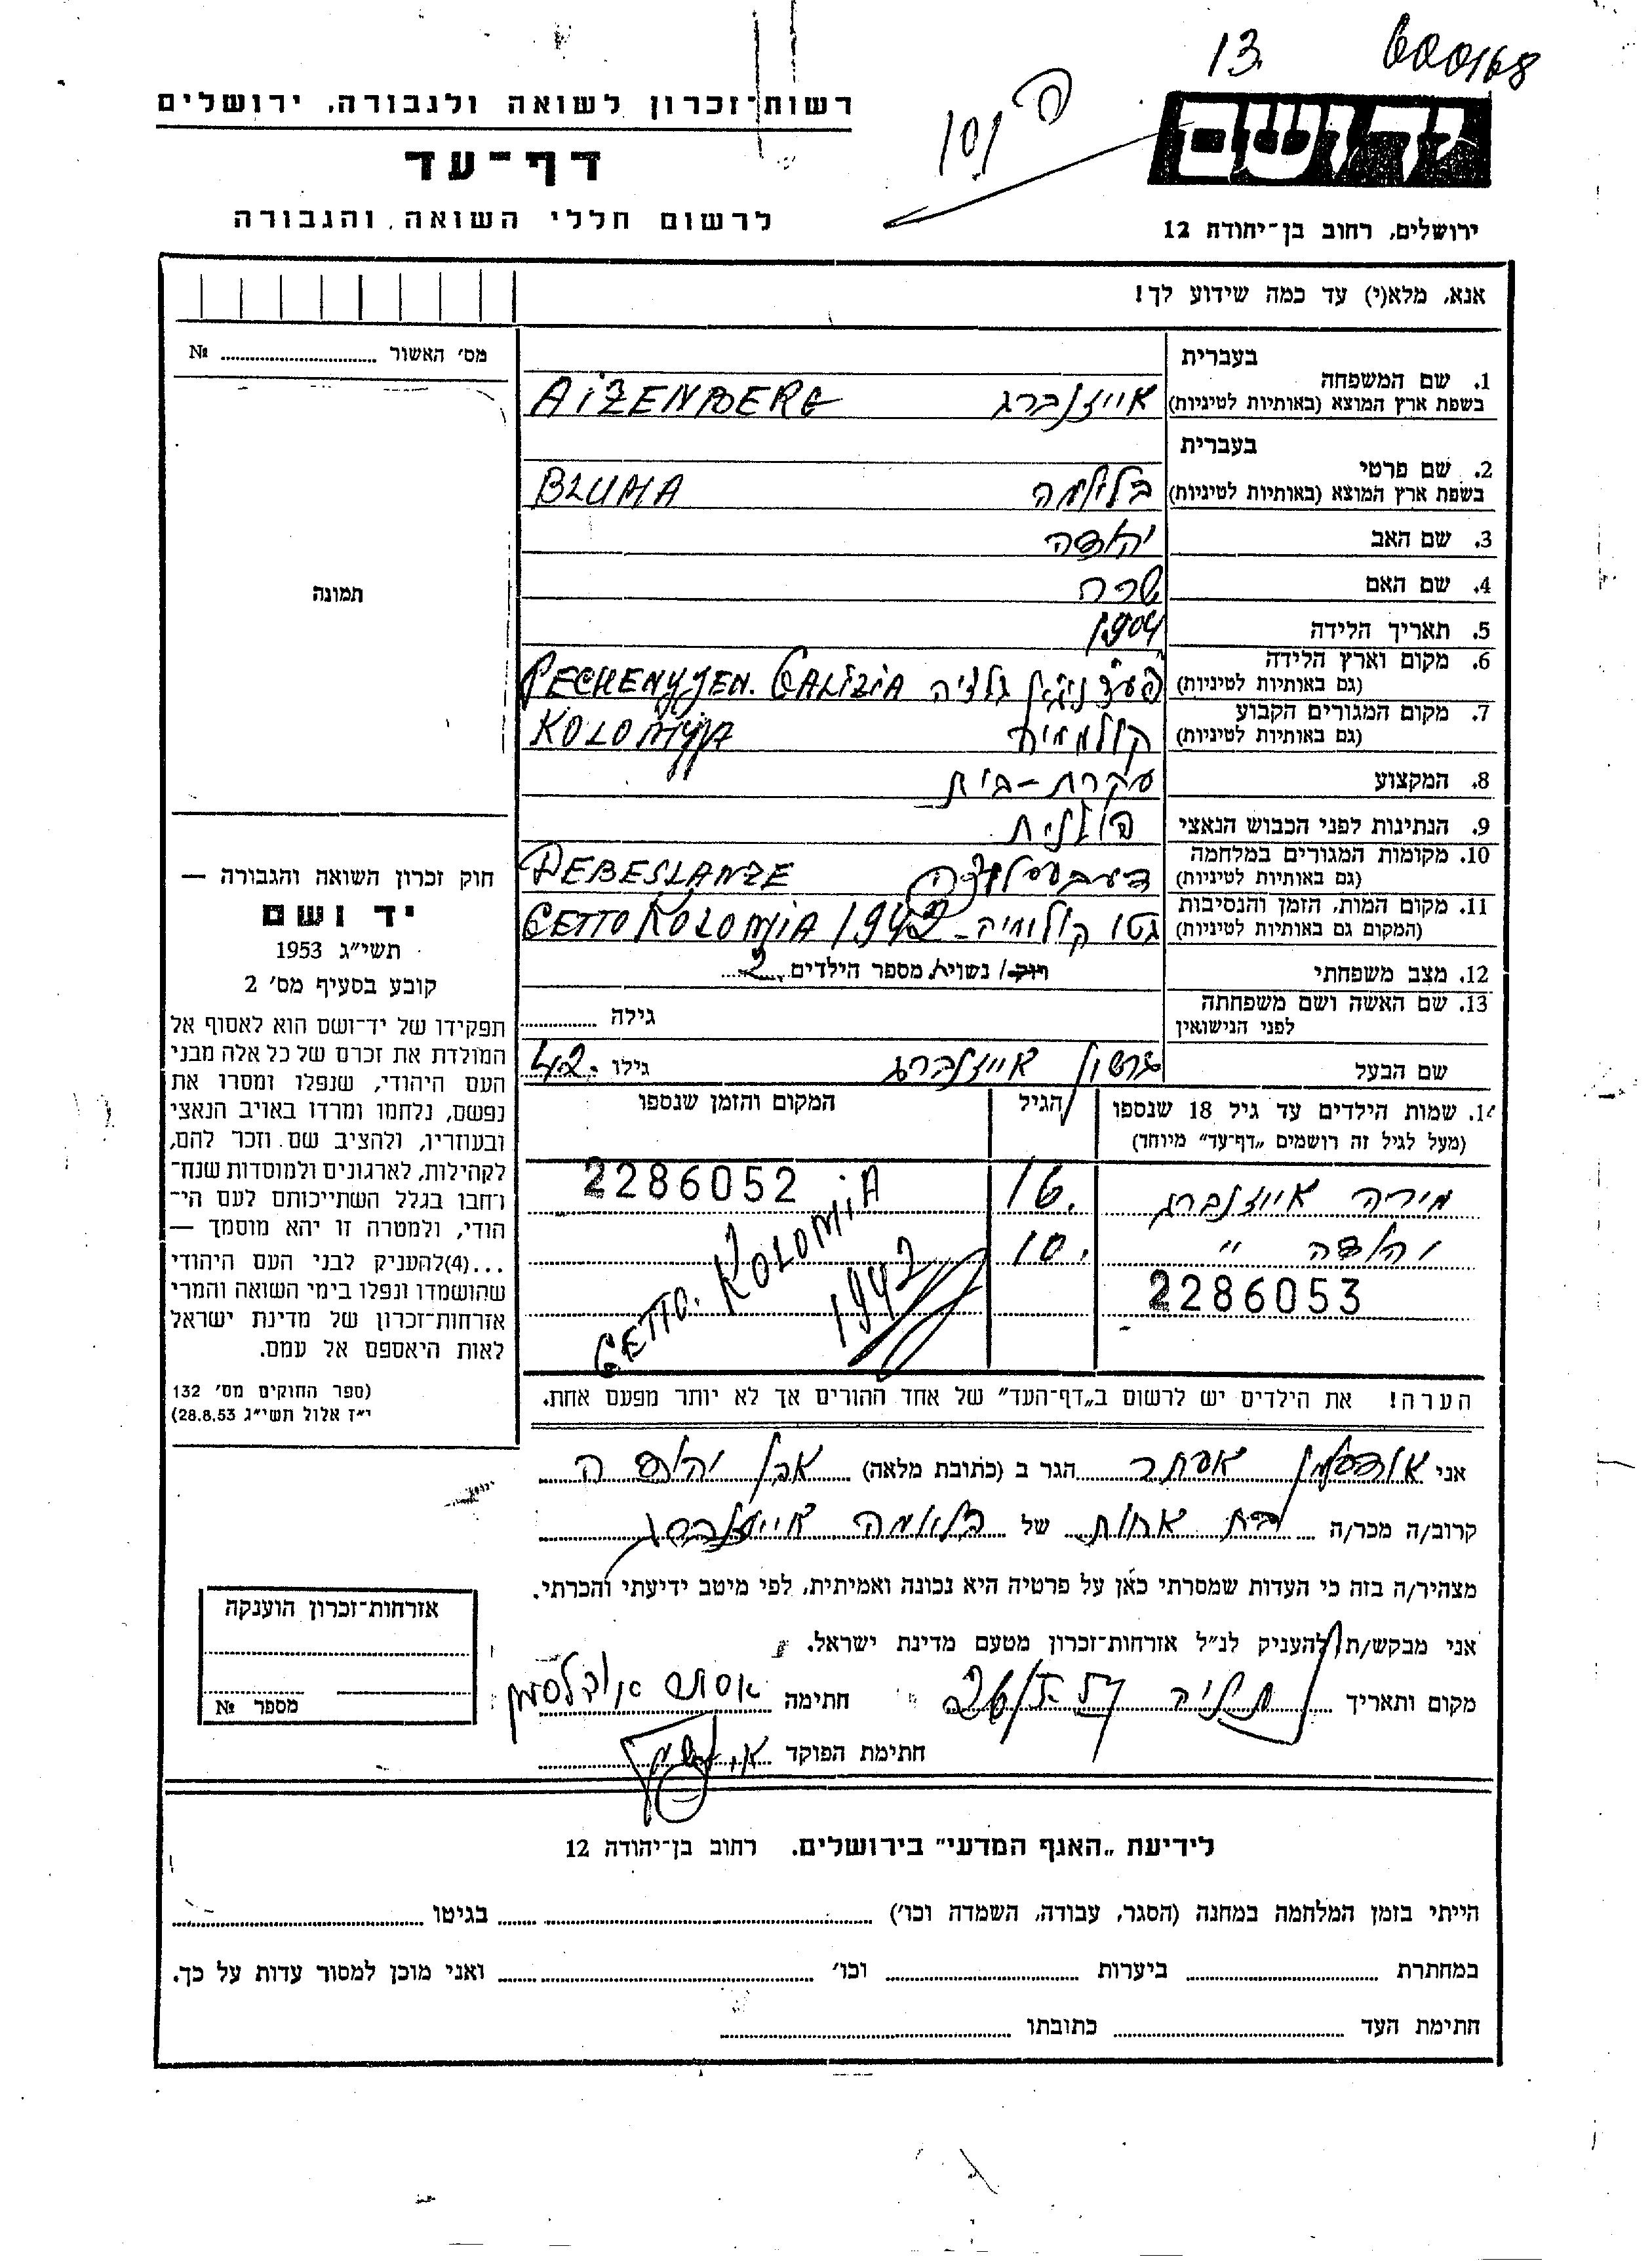 13. 600168
רשות־זכרון לשואה ולגבורה, ירושלים
דף־עד
לרשום חללי השואה והגבורה
ידושם
ירושלים, רחוב בן־יהודה 12
אנא, מלא(י) עד כמה שידוע לך!
מס׳ האשור ............ №
תמונה
בעברית
1. שם המשפחה
בשפת ארץ המוצא (באותיות לטיניות) אייזנברג AIZENBERG
בעברית
2. שם פרטי
בשפת ארץ המוצא (באותיות לטיניות) בלומה BLUMA
3. שם האב יהודה
4. שם האם שרה
5. תאריך הלידה 1904
6. מקום וארץ הלידה
(גם באותיות לטיניות) גלציה PECHENYJEN. GALIZIA
7. מקום המגורים הקבוע
(גם באותיות לטיניות) קולמיה KOLOMYJA
8. המקצוע עקרת-בית
9. הנתינות לפני הכבוש הנאצי פולנית
10. מקומות המגורים במלחמה
(גם באותיות לטיניות) DEBESLANZE
11. מקום המות, הזמן והנסיבות
(המקום גם באותיות לטיניות) גטו קולומיה - GETTO KOLOMIA 1942
12. מצב משפחתי רוק/ נשוי/ מספר הילדים 2
13. שם האשה ושם משפחתה
לפני הנישואין גילה ........
שם הבעל גרשון אייזנברג גילו 42
14. שמות הילדים עד גיל 18 שנספו הגיל המקום והזמן שנספו
(מעל לגיל זה רושמים „דף־עד״ מיוחד)
מירה אייזנברג 16. 2286052
יהודה ״ 10. GETTO. KOLOMIA 1942
2286053
הערה! את הילדים יש לרשום ב„דף־העד״ של אחד ההורים אך לא יותר מפעם אחת.
חוק זכרון השואה והגבורה —
יד ושם
תשי״ג 1953
קובע בסעיף מס׳ 2
תפקידו של יד־ושם הוא לאסוף אל
המולדת את זכרם של כל אלה מבני
העם היהודי, שנפלו ומסרו את
נפשם, נלחמו ומרדו באויב הנאצי
ובעוזריו, ולהציב שם וזכר להם,
לקהילות, לארגונים ולמוסדות שנח־
רחבו בגלל השתייכותם לעם הי־
הודי, ולמטרה זו יהא מוסמך —
...(4)להעניק לבני העם היהודי
שהושמדו ונפלו בימי השואה והמרי
אזרחות־זכרון של מדינת ישראל
לאות היאספם אל עמם.
(ספר החוקים מס׳ 132
י״ז אלול תשי״ג 28.8.53)
אני אסתר הגר ב (כתובת מלאה) אבן יהודה
קרוב/ה מכר/ה בת אחות של בלומה אייזנברג
מצהיר/ה בזה כי העדות שמסרתי כאן על פרטיה היא נכונה ואמיתית, לפי מיטב ידיעתי והכרתי.
אני מבקש/ת להעניק לנ״ל אזרחות־זכרון מטעם מדינת ישראל.
מקום ותאריך חתימה אסתר
חתימת הפוקד
אזרחות־זכרון הוענקה
מספר №
לידיעת „האגף המדעי״ בירושלים. רחוב בן־יהודה 12
הייתי בזמן המלחמה במחנה (הסגר, עבודה, השמדה וכו׳) ............ בגיטו ............
במחתרת ............ ביערות ............ וכו׳ ............ ואני מוכן למסור עדות על כך.
חתימת העד ............ כתובתו ............